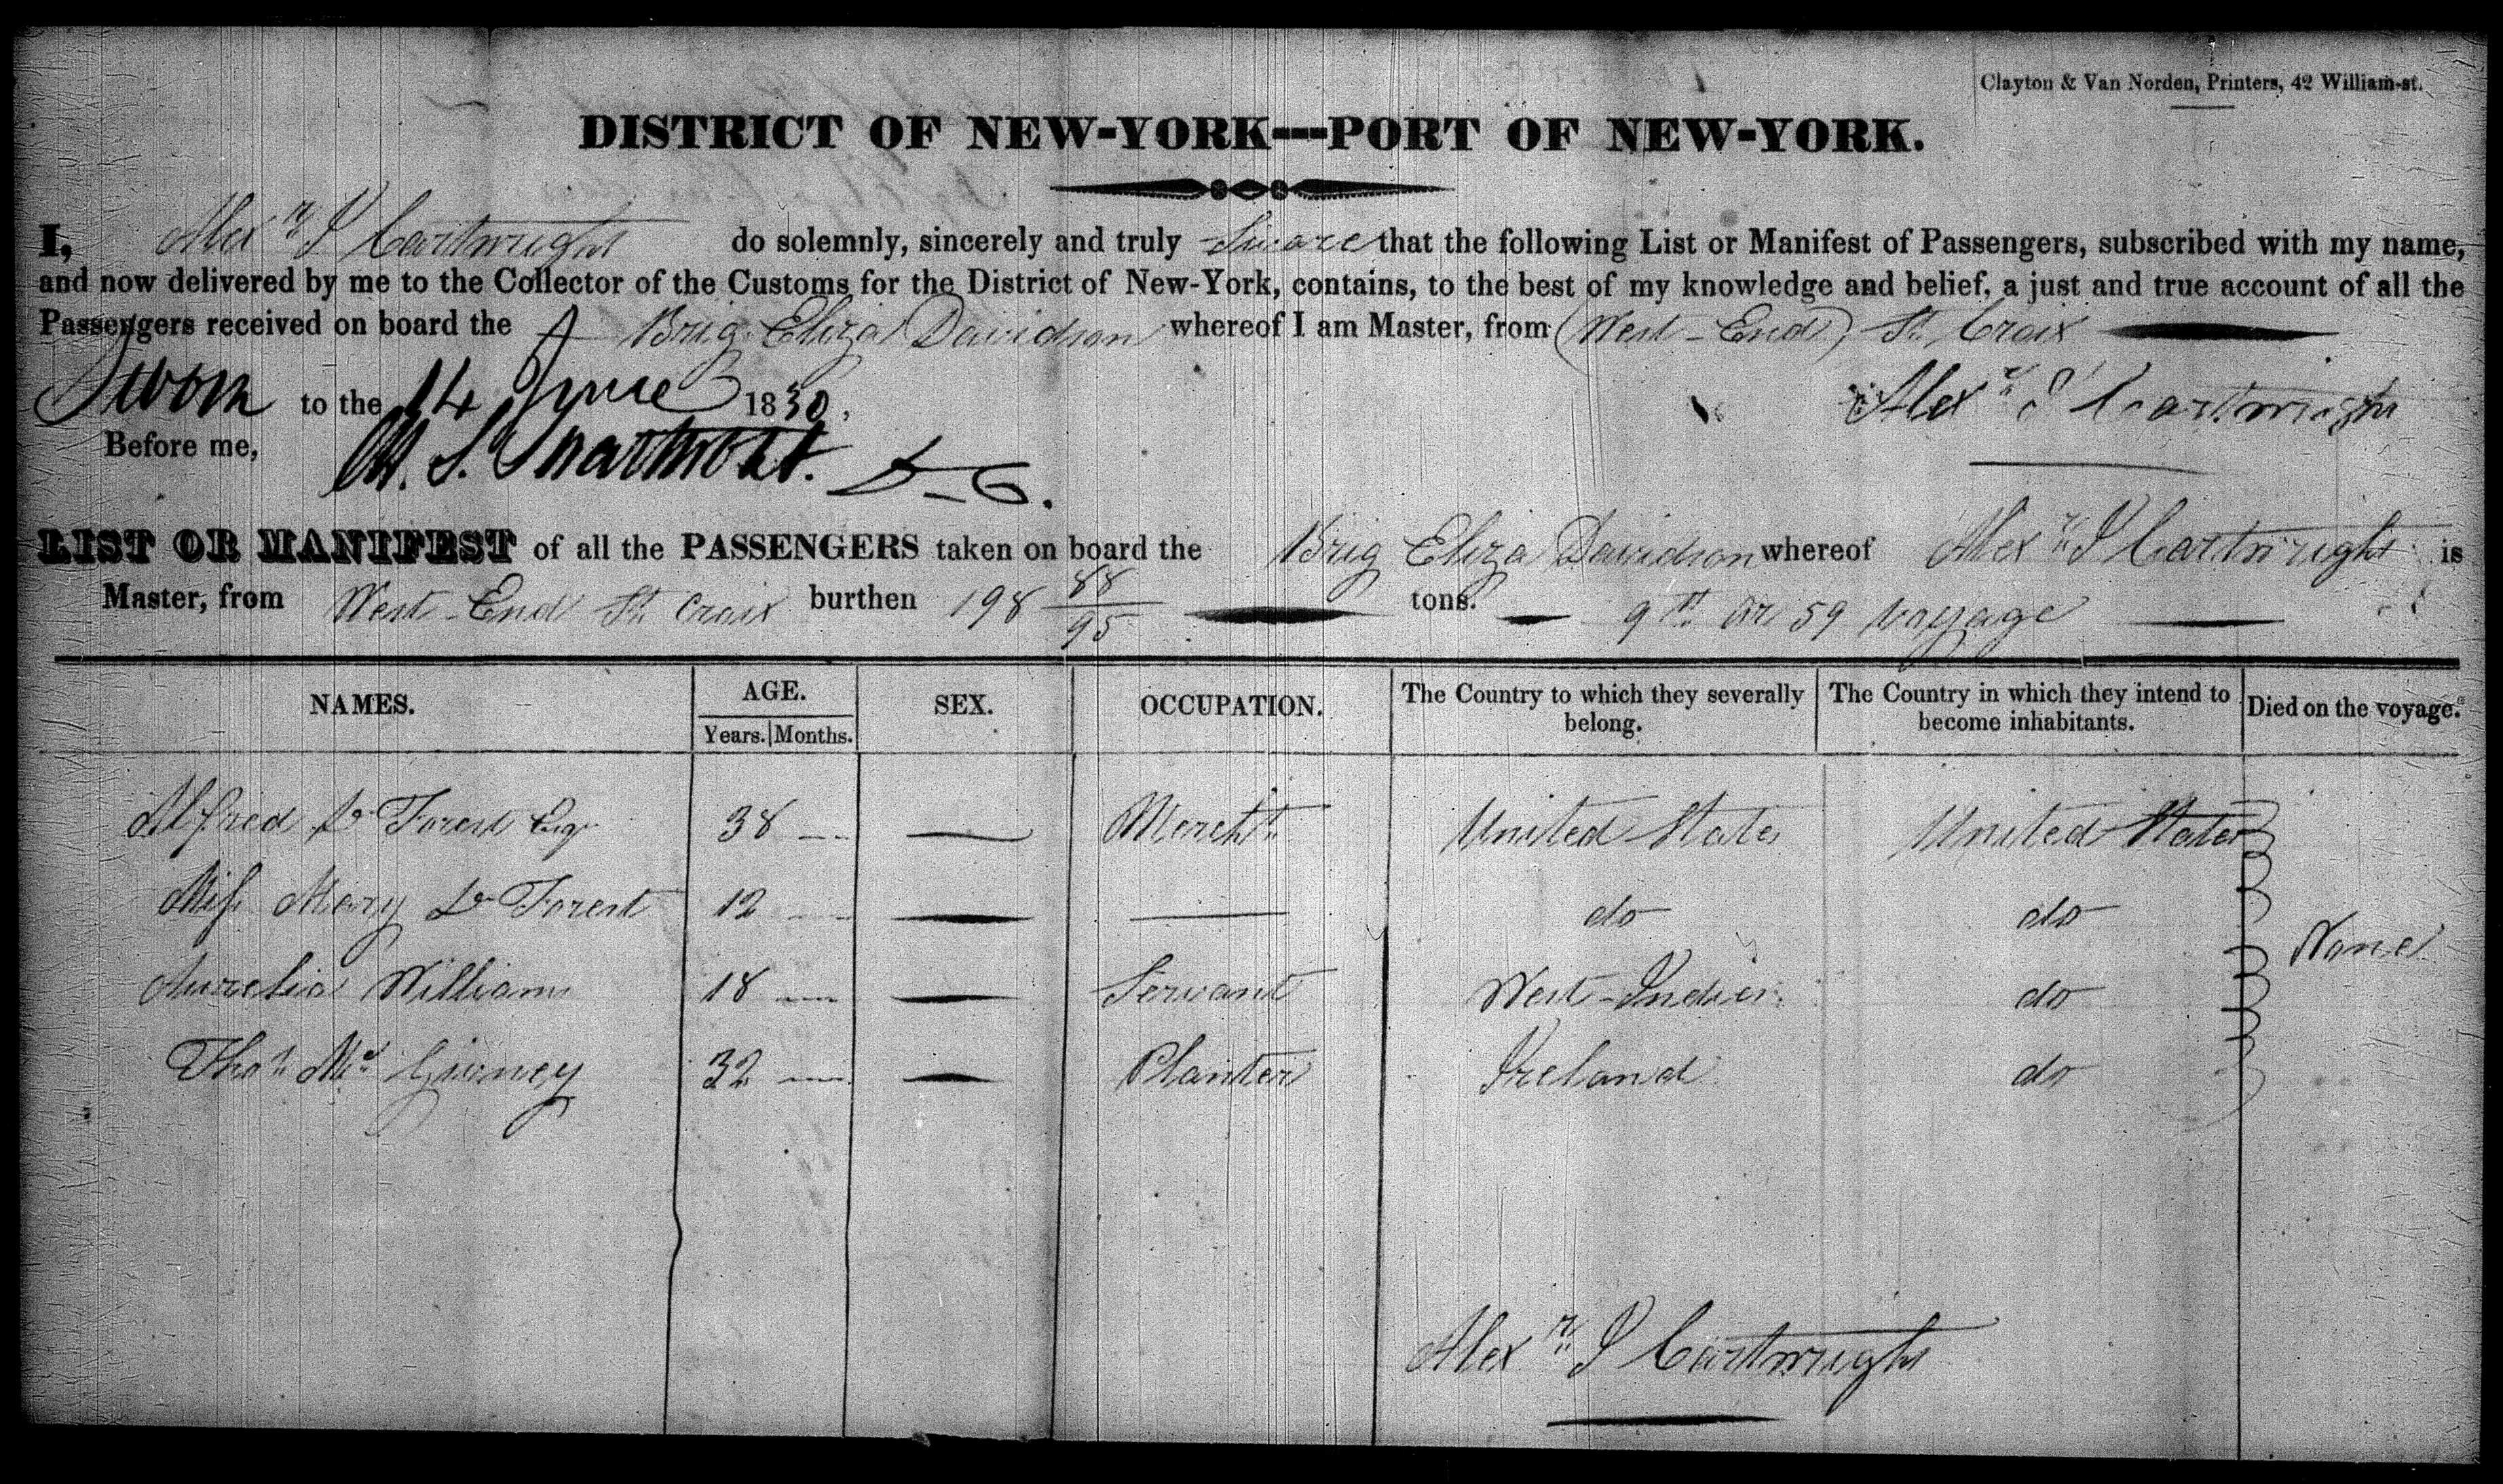 Clayton & Van Norden, Printers, 42 William-st.
DISTRICT OF NEW-YORK---PORT OF NEW-YORK.
I, Alexr J Cartwright do solemnly, sincerely and truly Sweare that the following List or Manifest of Passengers, subscribed with my name,
and now delivered by me to the Collector of the Customs for the District of New-York, contains, to the best of my knowledge and belief, a just and true account of all the
Passengers received on board the Brig Eliza Davidson whereof I am Master, from (West-End) St. Croix
Sworn to the 14 June 1830. Alexr J Cartwright
Before me,
LIST OR MANIFEST of all the PASSENGERS taken on board the Brig Eliza Davidson whereof Alexr J Cartwright is
Master, from West-End St Croix burthen 198 88/95 tons. 9th or 59 voyage
NAMES. AGE. SEX. OCCUPATION. The Country to which they severally belong. The Country in which they intend to become inhabitants. Died on the voyage.
Years. Months.
Alfred De Forest Esqr 38 Merch't United States United States
Miss Mary De Forest 12 do do
None
Aurelia Williams 18 Servant West-Indies do
Thos Mc 32 Planter Ireland do
Alexr J Cartwright